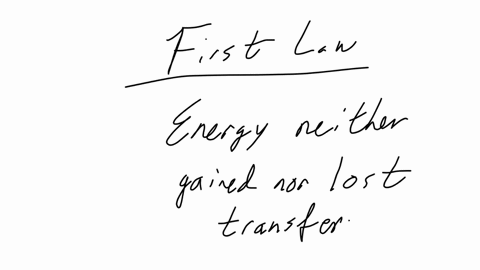 First Law
Energy neither
gained nor lost
transfer.